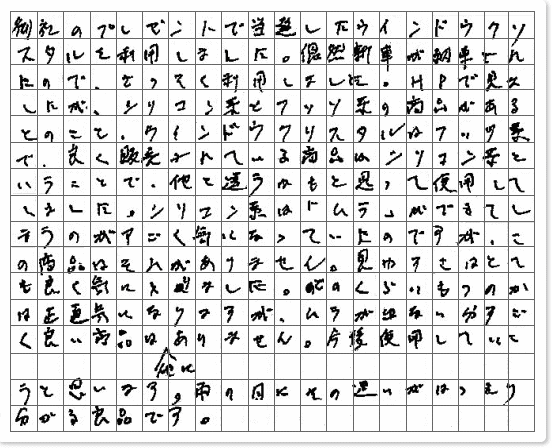 御社のプレゼントで当選したウインドウクリ
スタルを利用しました。偶然新車が納車され
たので、さっそく利用しました。HPで見ま
したが、シリコン系とフッソ系の商品がある
とのこと。ウインドウクリスタルはフッソ系
で、良く販売されている商品はシリコン系と
いうことで、他と違うかもと思って使用して
しました。シリコン系はドムラ」ができてし
まうのがすごく気になっていたのですが、こ
の商品はそれがありません。見やすさはとて
も良く気に入りました。どのくらいもつのか
は正直気になりますが、ムラが出ない分すご
く良い商品はありません。今後使用していこ
他に
うと思います。雨の日にその違いがはっきり
分かる良品です。